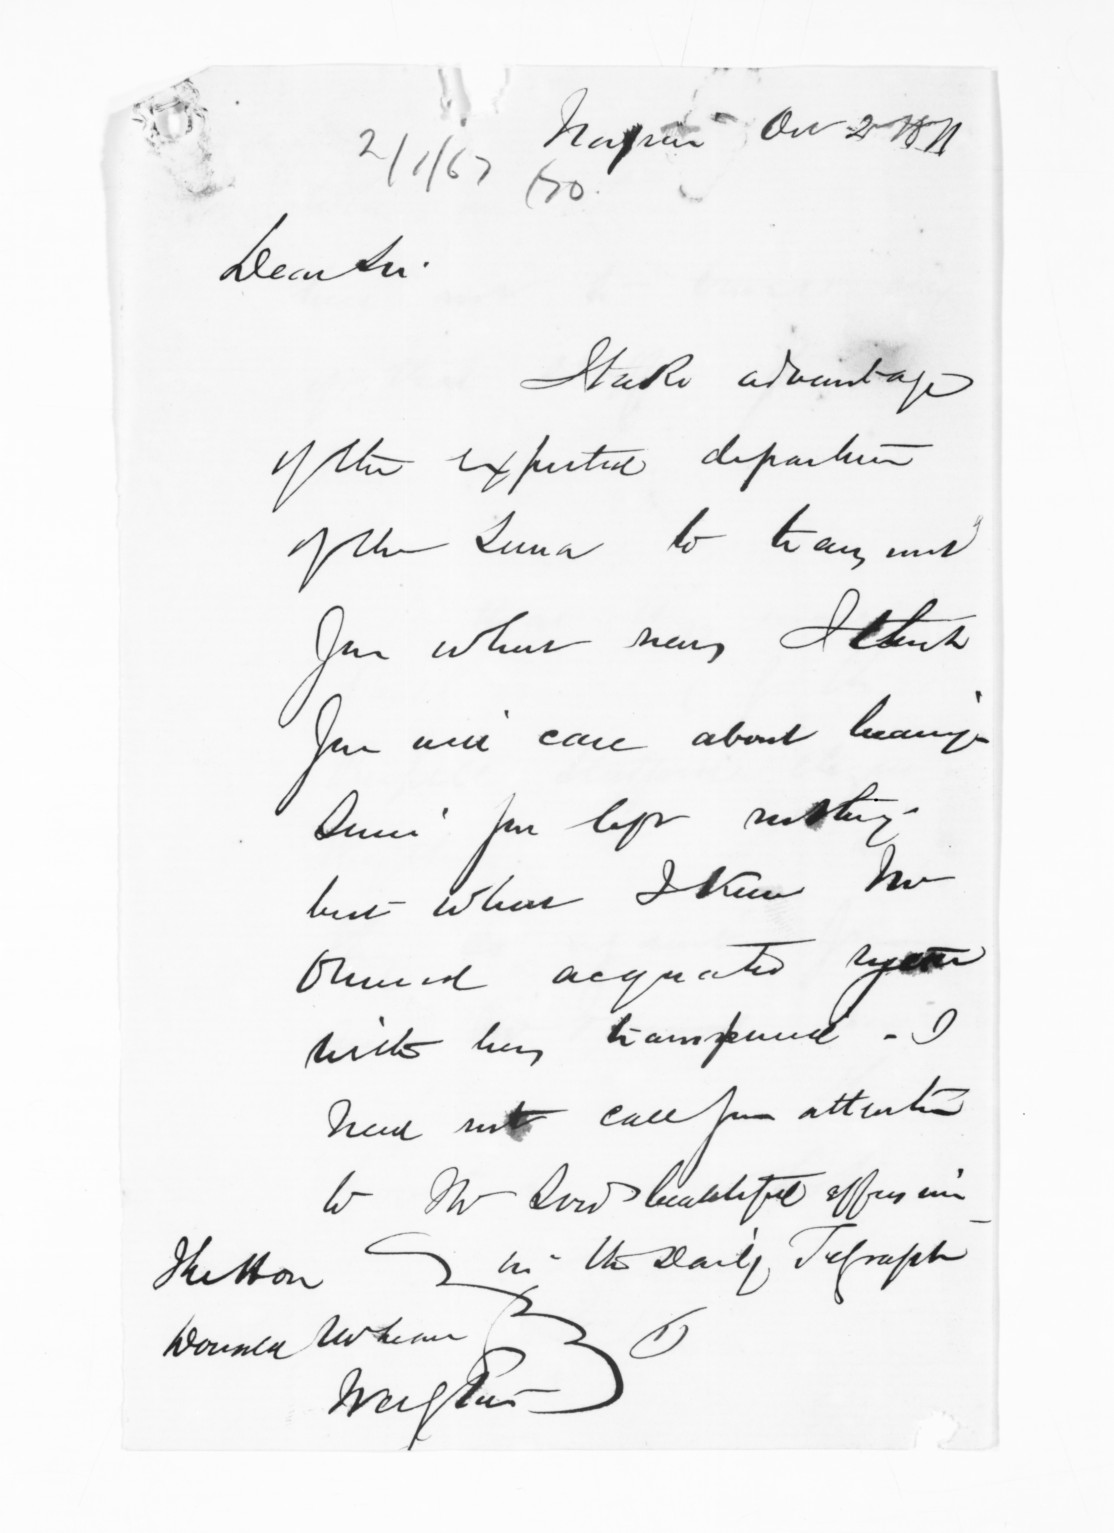 Napier Oct 2 1871
2/1/67 (70.
Dear Sir.
I take advantage
of the expected departure
of the Luna to transmit
you what news I think
you will care about hearing
Since you left nothing
but what I knew Mr
Ormond acquainted you
with has transpired - I
need not call your attention
to Mr Lord's beautiful effusion
in the Daily Telegraph
The Hon
Donald McLean
Wellington
1)